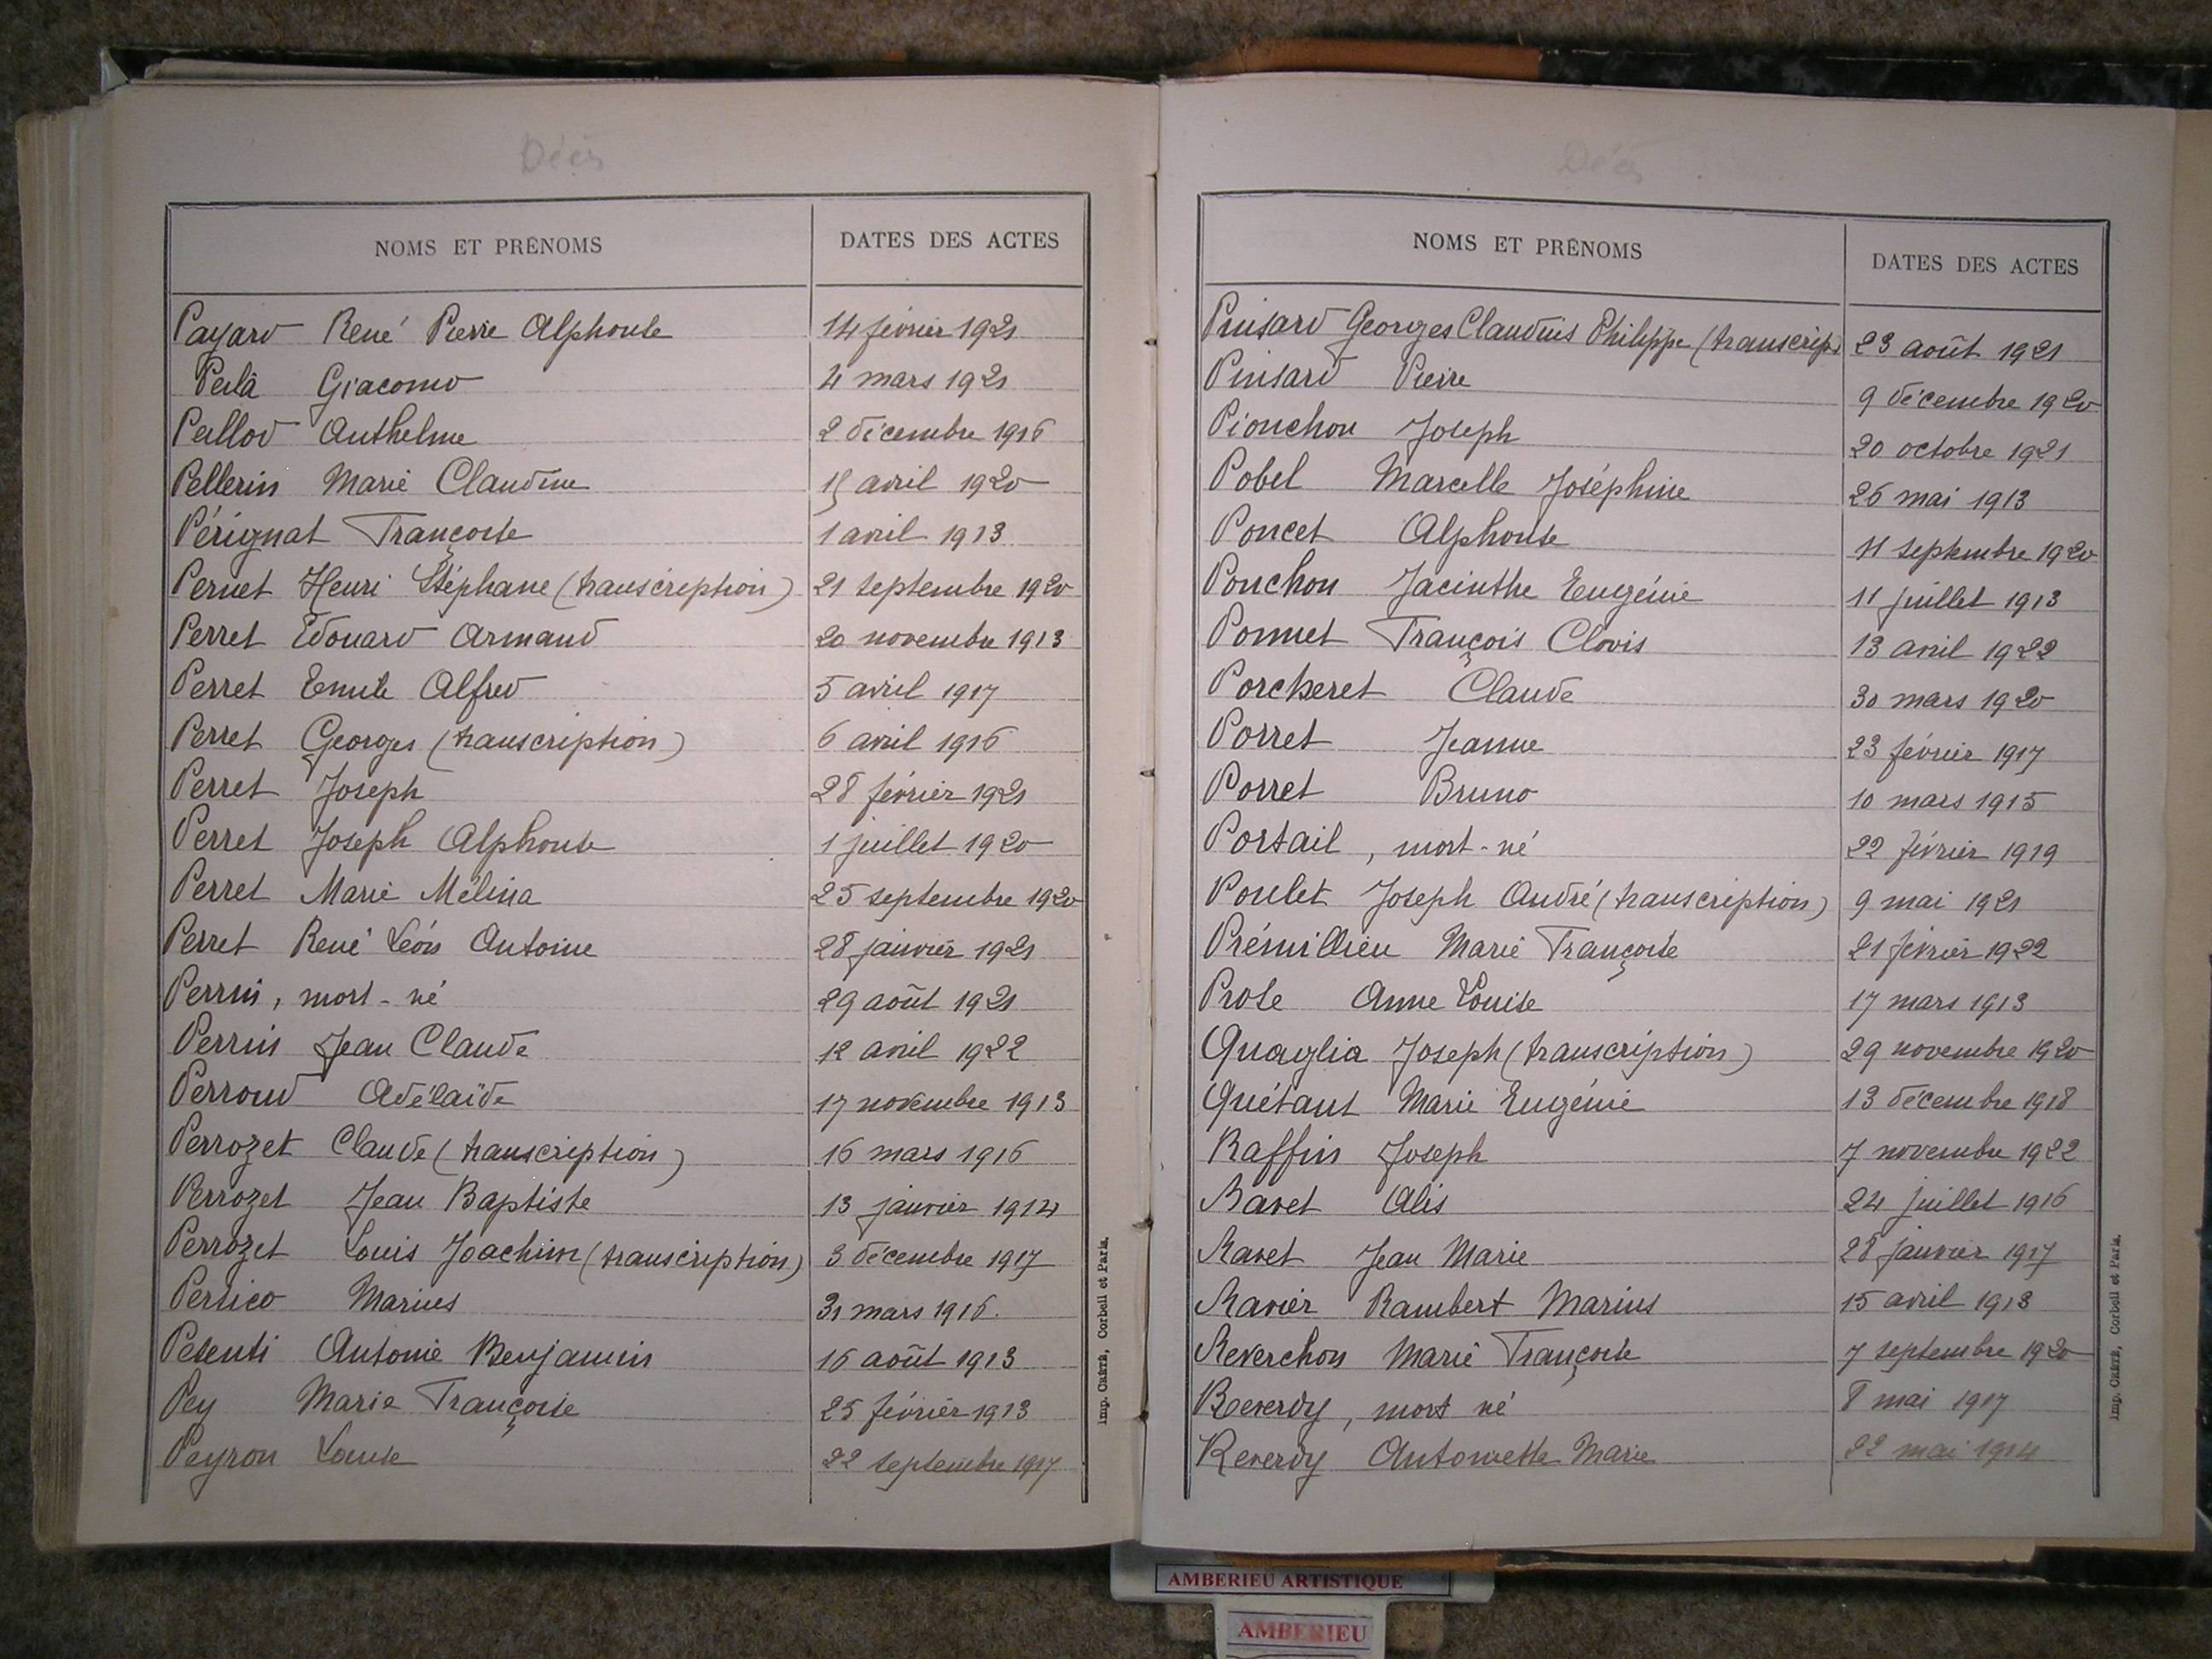 Décès
NOMS ET PRÉNOMS DATES DES ACTES
Payard René Pierre Alphonse 14 février 1921
Peilà Giacomo 4 mars 1921
Pellod Anthelme 2 décembre 1916
Pellerin Marie Claudine avril 1920
Pérignat Françoise 1 avril 1913
Pernet Henri Stéphane (transcription) 21 septembre 1920
Perret Edouard Armand 20 novembre 1913
Perret Emile Alfred 5 avril 1917
Perret Georges (transcription) 6 avril 1916
Perret Joseph 28 février 1921
Perret Joseph Alphonse 1 juillet 1920
Perret Marie Mélina 25 septembre 1920
Perret René Léon Antoine 28 janvier 1921
Perrin, mort-né 29 août 1921
Perrin Jean Claude 12 avril 1922
Perroud Adélaïde 17 novembre 1913
Perrozet Claude (transcription) 16 mars 1916
Perrozet Jean Baptiste 13 janvier 1914
Perrozet Louis Joachim (transcription) 3 décembre 1917
Persico Marius 31 mars 1916.
Pesenti Antonie Benjamin 16 août 1913
Pey Marie Françoise 25 février 1913
Peyron Louise 22 septembre 1917
Imp. CRÉTÉ, Corbeil et Paris.
Décès
NOMS ET PRÉNOMS DATES DES ACTES
Pinsard Georges Claudius Philippe (transcrip) 23 août 1921
Pinsard Pierre 9 décembre 1920
Pionchon Joseph 20 octobre 1921
Pobel Marcelle Joséphine 26 mai 1913
Poncet Alphonse 11 septembre 1920
Ponchon Jacinthe Eugénie 11 juillet 1913
Ponnet François Clovis 13 avril 1922
Porcheret Claude 30 mars 1920
Porret Jeanne 23 février 1917
Porret Bruno 10 mars 1915
Portail, mort-né 22 février 1919
Poulet Joseph André (transcription) 9 mai 1921
Prémillieu Marie Françoise 21 février 1922
Prose Anne Louise 17 mars 1913
Quaglia Joseph (transcription) 29 novembre 1920
Quétant Marie Eugénie 13 décembre 1918
Raffin Joseph 7 novembre 1922
Ravet Alis 24 juillet 1916
Ravet Jean Marie 28 janvier 1917
Ravier Rambert Marius 15 avril 1913
Reverchon Marie Françoise 7 septembre 1920
Reverdy, mort né 8 mai 1917
Reverdy Antoinette Marie 22 mai 1914
Imp. CRÉTÉ, Corbeil et Paris.
AMBERIEU ARTISTIQUE
AMBERIEU